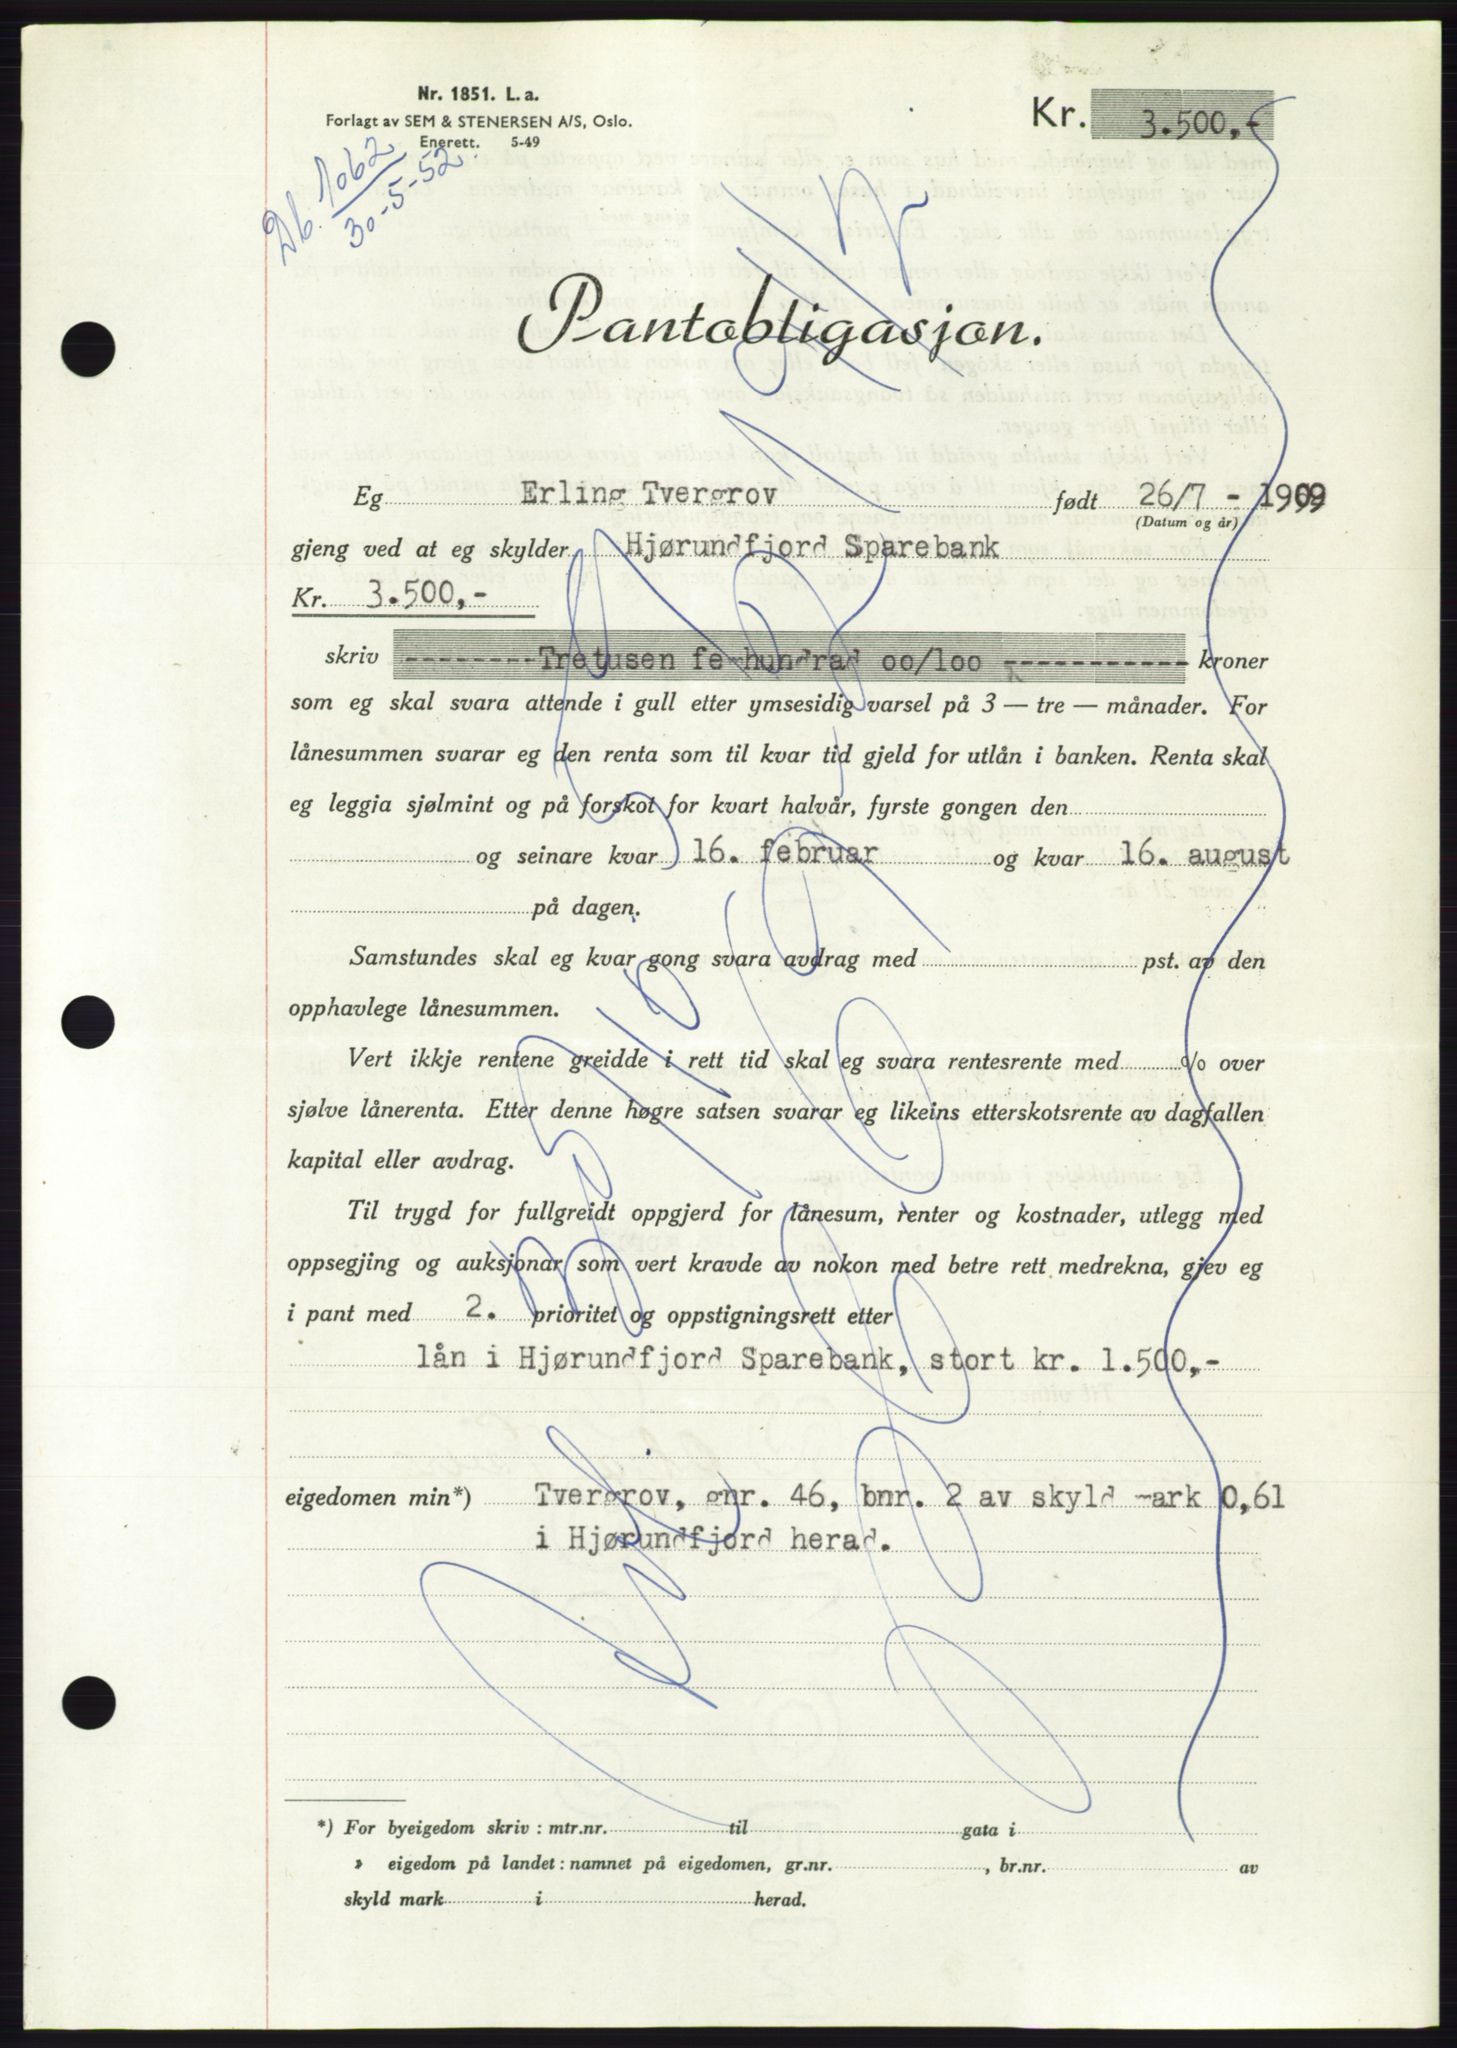 Nr. 1851. L. a.
Forlagt av SEM & STENERSEN A/S, Oslo.
Enerett. 5-49
Db. 1062
30-5-52
Kr. 3.500,-
Pantobligasjon.
Eg Erling Tvergrov født 26/7 - 1909
(Datum og år)
gjeng ved at eg skylder Hjørundfjord Sparebank
Kr. 3.500,-
skriv --------Tretusen femhundrad oo/loo ----------- kroner
som eg skal svara attende i gull etter ymsesidig varsel på 3 — tre — månader. For
lånesummen svarar eg den renta som til kvar tid gjeld for utlån i banken. Renta skal
eg leggja sjølmint og på forskot for kvart halvår, fyrste gongen den
og seinare kvar 16. februar og kvar 16. august
på dagen.
Samstundes skal eg kvar gong svara avdrag med pst. av den
opphavlege lånesummen.
Vert ikkje rentene greidde i rett tid skal eg svara rentesrente med % over
sjølve lånerenta. Etter denne høgre satsen svarar eg likeins etterskotsrente av dagfallen
kapital eller avdrag.
Til trygd for fullgreidt oppgjerd for lånesum, renter og kostnader, utlegg med
oppsegjing og auksjonar som vert kravde av nokon med betre rett medrekna, gjev eg
i pant med 2. prioritet og oppstigningsrett etter
lån i Hjørundfjord Sparebank, stort kr. 1.500,-
eigedomen min*) Tvergrov, gnr. 46, bnr. 2 av skyld mark 0,61
i Hjørundfjord herad.
*) For byeigedom skriv : mtr.nr. til gata i
» eigedom på landet : namnet på eigedomen, gr.nr. , br.nr. av
skyld mark i herad.